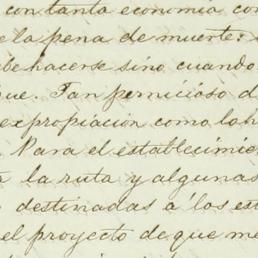 con tanta economia co
e la pena de muerte:
be hacerse sino cuando
que. Tan pernicioso d
expropiacion como lo h
. Para el establecimie
la ruta y algunas
destinadas á los es
el proyecto de que me